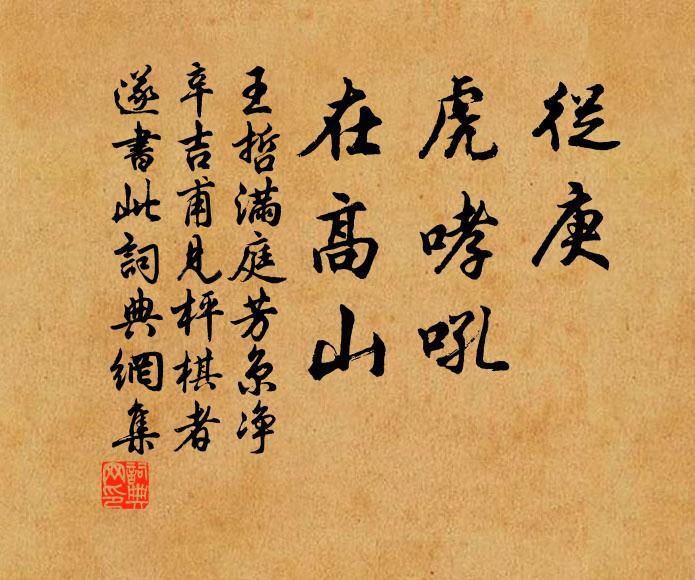 從庚
虎哮吼
在高山
王哲滿庭芳京净
辛吉甫見枰棋者
遂書此詞典網集
詞典
网印